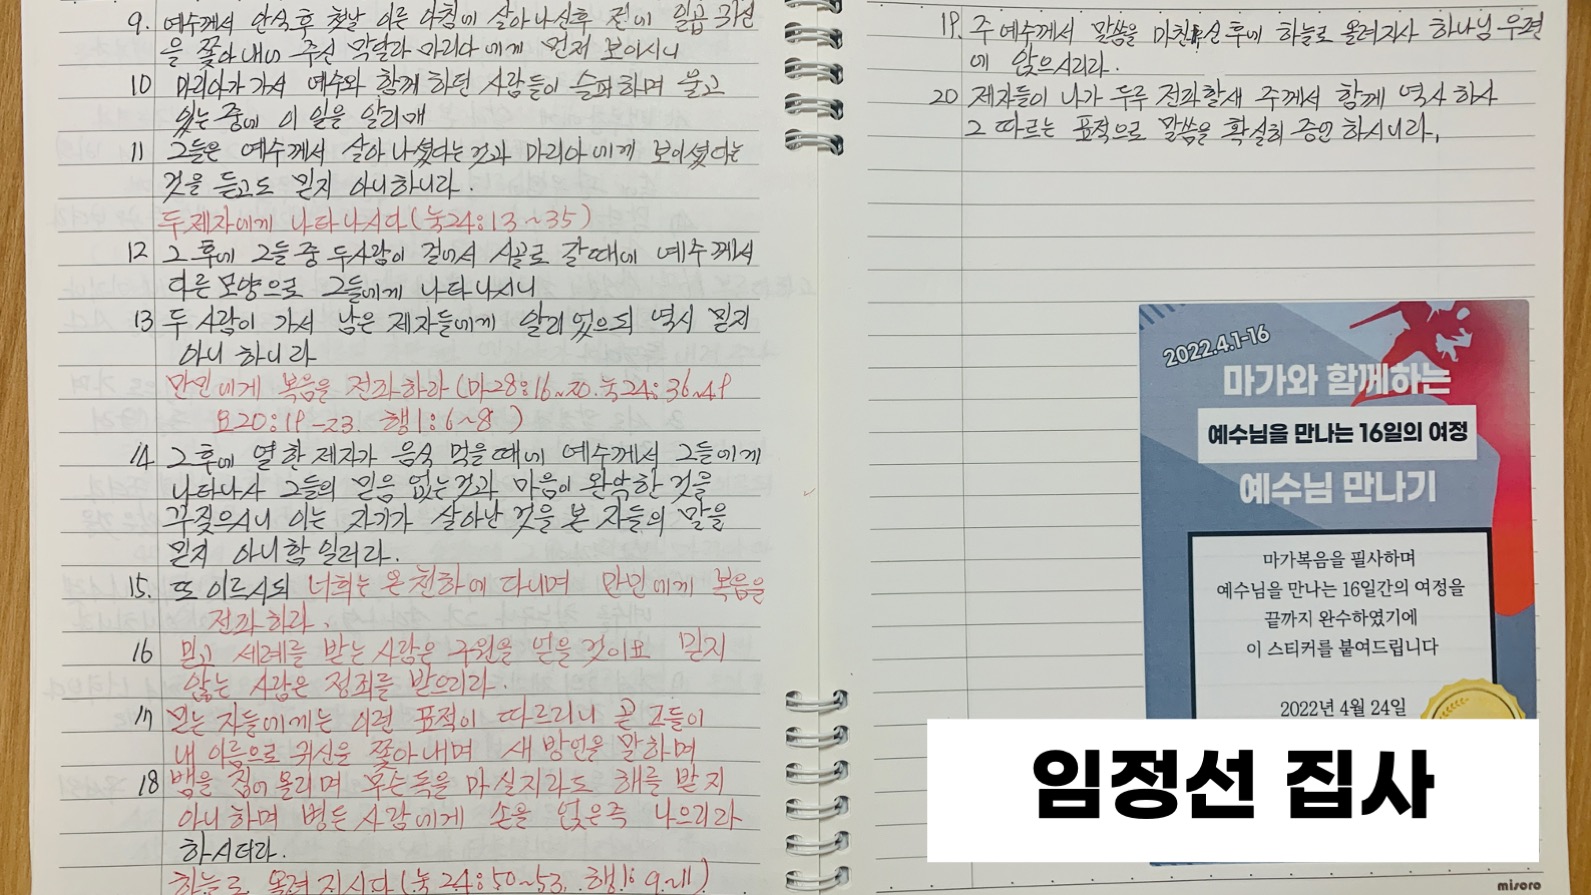 9. 예수께서 안식후 첫날 이른 아침에 살아나신후 전에 일곱 귀신
을 쫓아내어 주신 막달라 마리아에게 먼저 보이시니
10 마리아가 가서 예수와 함께 하던 사람들이 슬퍼하며 울고
있는 중에 이 일을 알리매
11 그들은 예수께서 살아 나셨다는것과 마리아에게 보이셨다는
것을 듣고도 믿지 아니하니라.
두 제자에게 나타나시다(눅24:13~35)
12 그 후에 그들 중 두사람이 걸어서 시골로 갈때에 예수께서
다른 모양으로 그들에게 나타나시니
13 두 사람이 가서 남은 제자들에게 알리었으되 역시 믿지
아니 하니라
만민에게 복음을 전파하라(마28:16~20. 눅24:36~49
요20:19-23. 행1:6~8)
14 그 후에 열 한 제자가 음식 먹을때에 예수께서 그들에게
나타나사 그들의 믿음 없는것과 마음이 완악한 것을
꾸짖으시니 이는 자기가 살아난 것을 본 자들의 말을
믿지 아니함 일러라.
15. 또 이르시되 너희는 온 천하에 다니며 만민에게 복음을
전파하라.
16 믿고 세례를 받는 사람은 구원을 얻을 것이요 믿지
않는 사람은 정죄를 받으리라.
17 믿는 자들에게는 이런 표적이 따르리니 곧 그들이
내 이름으로 귀신을 쫓아내며 새 방언을 말하며
18 뱀을 집어올리며 무슨독을 마실지라도 해를 받지
아니하며 병든 사람에게 손을 얹은즉 나으리라
하시더라.
하늘로 올려지시다(눅24:50~53. 행1:9~11)
19. 주 예수께서 말씀을 마친신후에 하늘로 올려지사 하나님 우편
에 앉으시리라.
20 제자들이 나가 두루 전파할새 주께서 함께 역사하사
그 따르는 표적으로 말씀을 확실히 증언하시니라.
2022.4.1-16
마가와 함께하는
예수님을 만나는 16일의 여정
예수님 만나기
마가복음을 필사하며
예수님을 만나는 16일간의 여정을
끝까지 완수하였기에
이 스티커를 붙여드립니다
2022년 4월 24일
임정선 집사
misoro